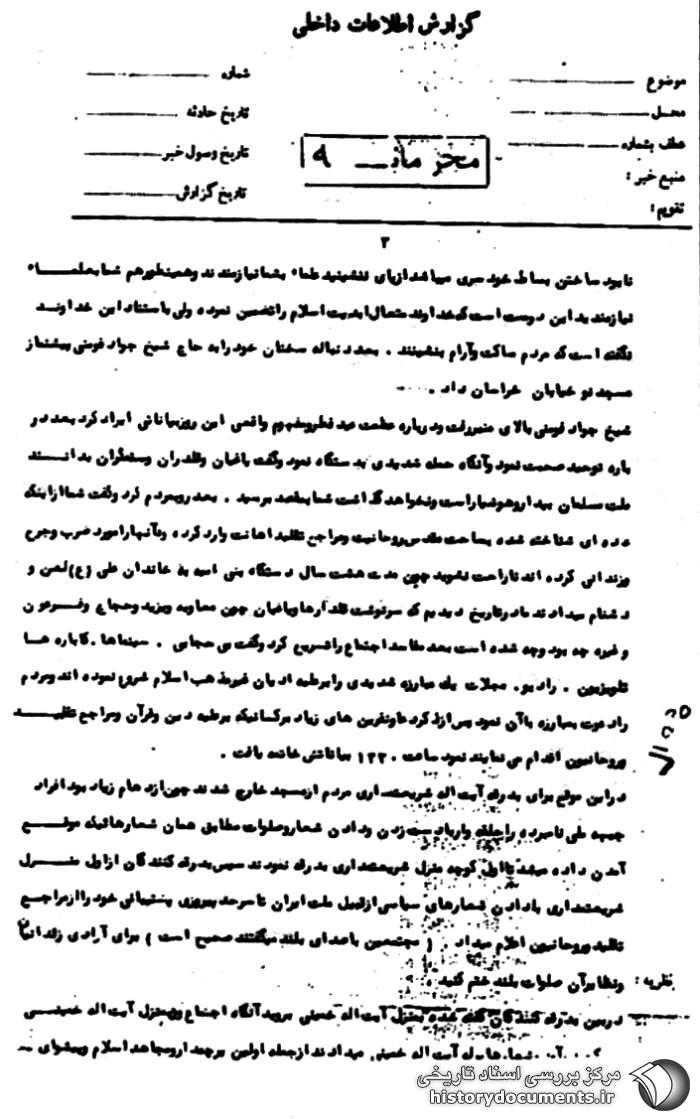 گزارش اطلاعات داخلی
موضوع
محل
عطف بشماره
منبع خبر :
تقویم :
شماره
تاریخ حادثه
تاریخ وصول خبر
تاریخ گزارش
محرمانه
۳
نابود ساختن بساط خود سری میباشد از پای ننشینید علماء بشما نیازمندند و همینطور هم شما بعلماء
نیازمندید این درست است که خداوند متعال ابدیت اسلام را تضمین نموده ولی باستناد این خداوند
نگفته است که مردم ساکت و آرام بنشینند . بعد دنباله سخنان خود را به حاج شیخ جواد فومنی پیشنماز
مسجد نو خیابان خراسان داد .
شیخ جواد فومنی بالای منبر رفت و درباره عظمت عید فطر و مفهوم واقعی این روز بیاناتی ایراد کرد بعد در
باره توحید صحبت نمود و آنگاه حمله شدیدی بدستگاه نمود و گفت یاغیان و قلدران و ستمگران بدانند
ملت مسلمان بیدار و هوشیار است و نخواهد گذاشت شما بمقصد برسید . بعد رو بمردم کرد و گفت شما از اینکه
عده ای شناخته شده بساحت مقدس روحانیت و مراجع تقلید اهانت وارد کرده و آنها را مورد ضرب و جرح
وزندانی کرده اند ناراحت نشوید چون مدت هشت سال دستگاه بنی امیه به خاندان علی (ع) لعن و
دشنام میدادند مادر تاریخ دیدیم که سرنوشت قلدارها و یاغیان چون معاویه و یزید و حجاج و فرعون
و غیره چه بود و چه شده است بعد مفاسد اجتماع را تشریح کرد و گفت بی حجابی . سینماها . کاباره ها
تلویزیون . رادیو . مجلات یک مبارزه شدیدی را برعلیه ادیان غیر مذهب اسلام شروع نموده اند و مردم
را دعوت بمبارزه با آن نمود پس از ذکر دعا و نفرین های زیاد بر کسانیکه برعلیه دین و قرآن و مراجع تقلید
و روحانیون اقدام می نمایند نمود ساعت ۱۲۳۰ بیاناتش خاتمه یافت .
در این موقع برای بدرقه آیت اله شریعتمداری مردم از مسجد خارج شدند چون ازدحام زیاد بود افراد
جبهه ملی نامبرده را حلقه وار با دست زدن و دادن شعار و صلوات مطابق همان شعارهائیکه موقع
آمدن داده میشد تا اول کوچه منزل شریعتمداری بدرقه نمودند سپس بدرقه کنندگان از اول منزل
شریعتمداری با دادن شعارهای سیاسی از قبیل ملت ایران تا سرحد پیروزی پشتیبانی خود را از مراجع
تقلید و روحانیون اعلام میدارد . ( مجتمعین با صدای بلند میگفتند صحیح است ) برای آزادی زندانیان
و نظایر آن صلوات بلند ختم کنید .
نظریه :
در بین بدرقه کنندگان گفته شد بمنزل آیت اله خمینی بروید آنگاه اجتماع بمنزل آیت اله خمینی
شعارهای له آیت اله خمینی میدادند از جمله اولین پرچمدار و مجاهد اسلام و پیشوای
مرکز بررسی اسناد تاریخی
historydocuments.ir